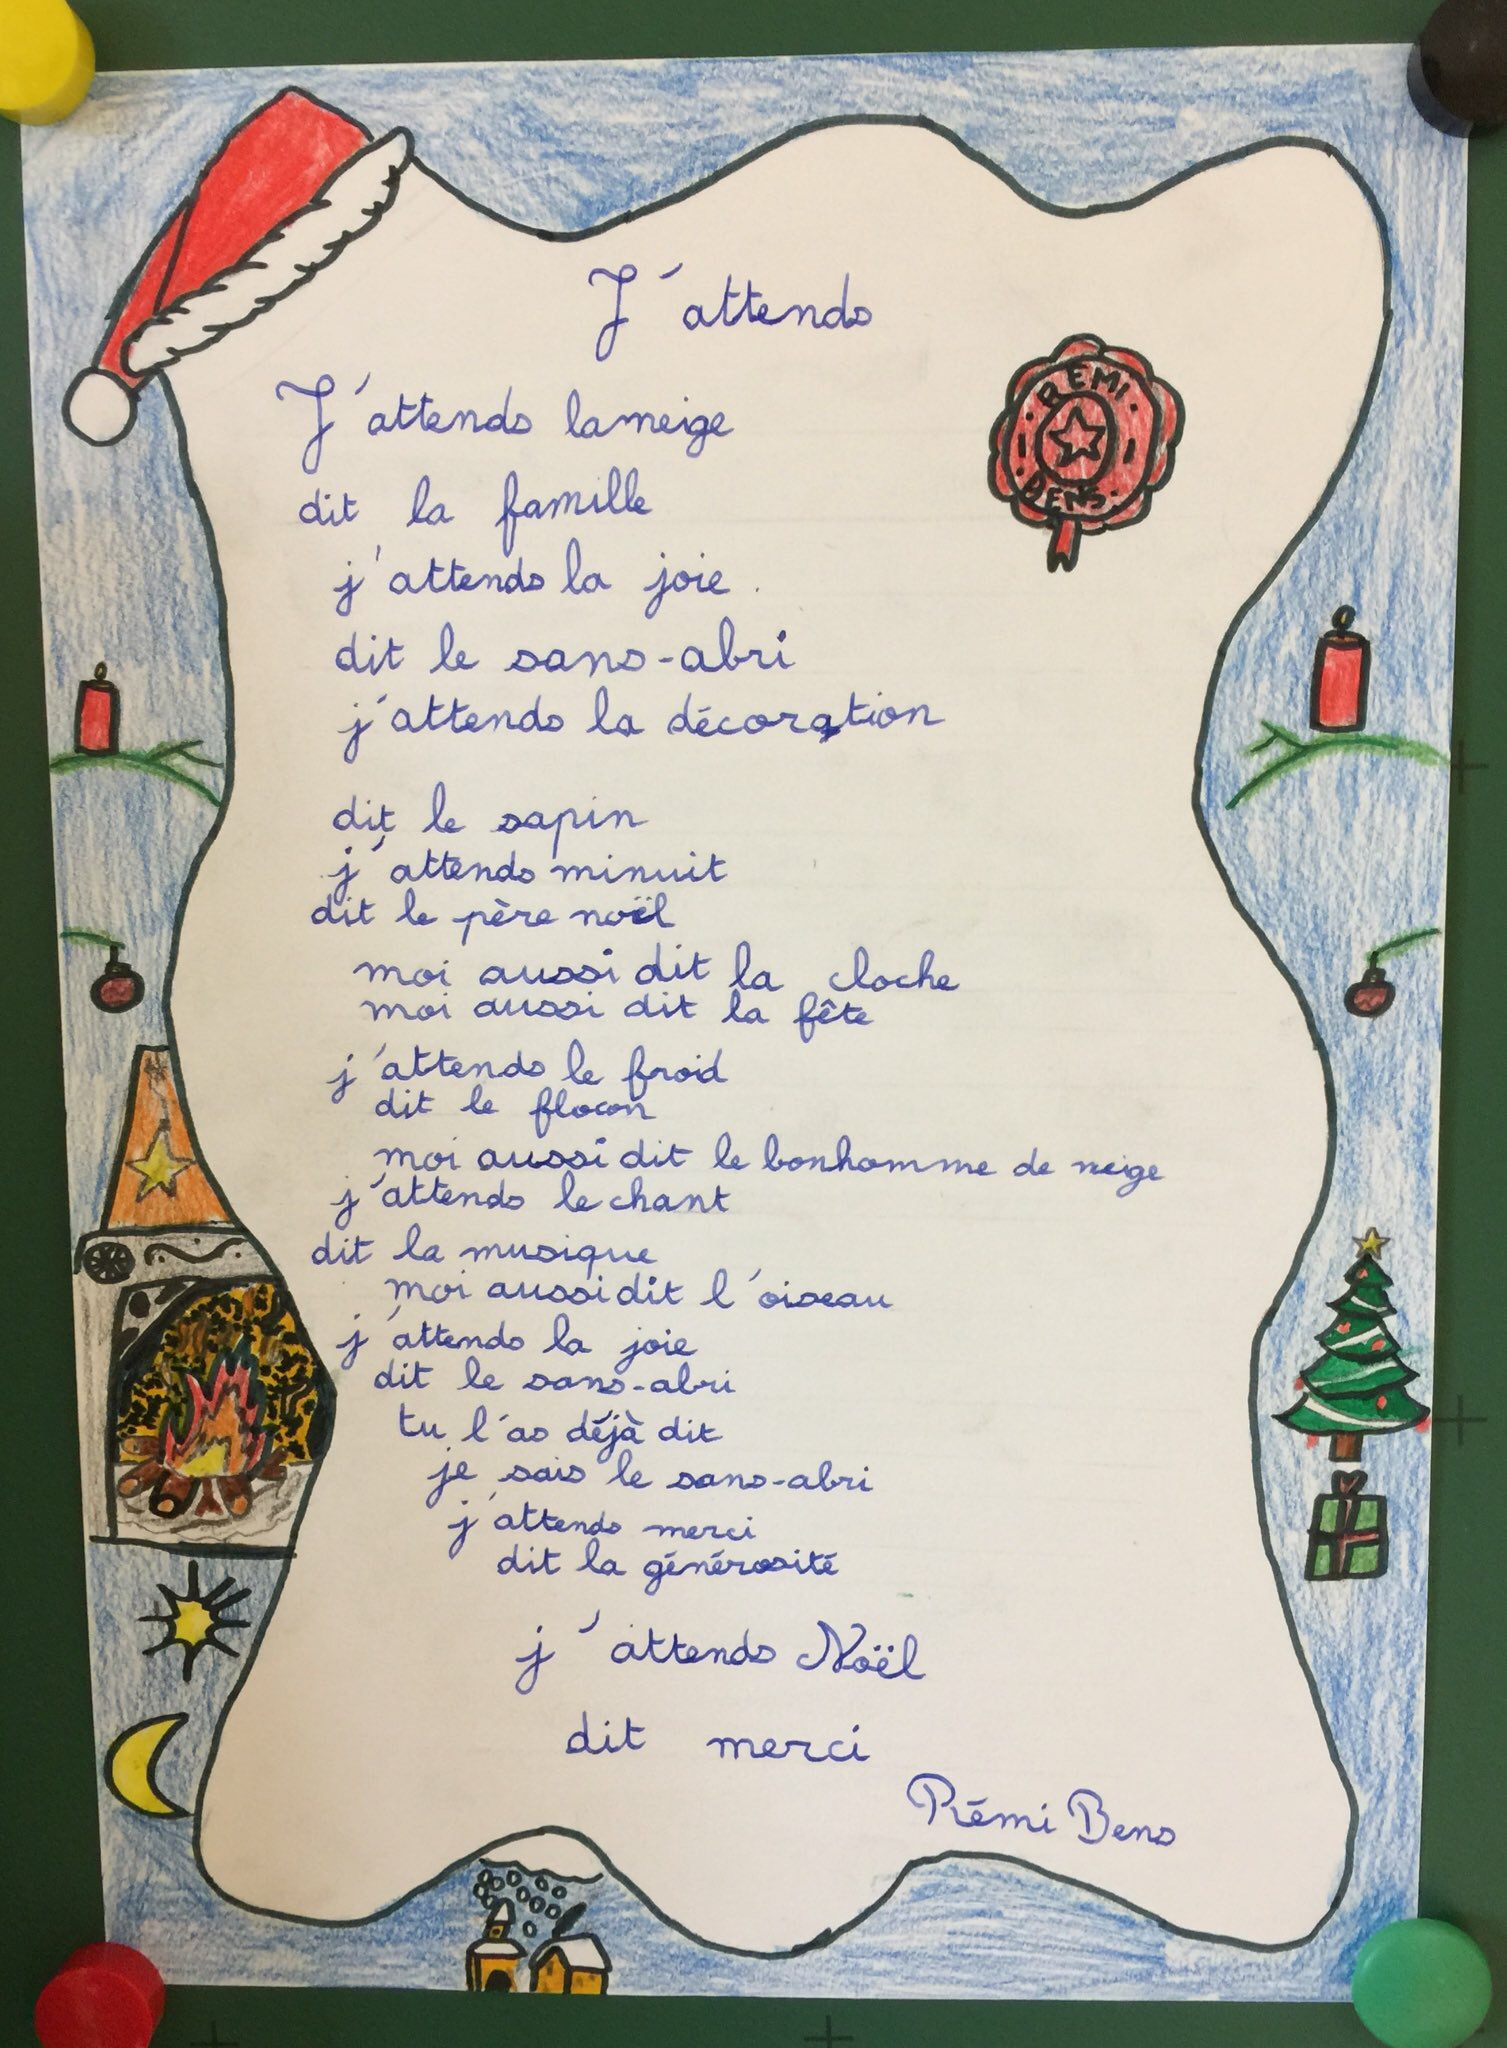 J'attends
J'attends la neige
dit la famille
j'attends la joie
dit le sans-abri
j'attends la décoration
dit le sapin
j'attends minuit
dit le père noël
moi aussi dit la cloche
moi aussi dit la fête
j'attends le froid
dit le flocon
moi aussi dit le bonhomme de neige
j'attends le chant
dit la musique
moi aussi dit l'oiseau
j'attends la joie
dit le sans-abri
tu l'as déjà dit
je sais le sans-abri
j'attends merci
dit la générosité
j'attends Noël
dit merci
Rémi Bens
REMI
BENS